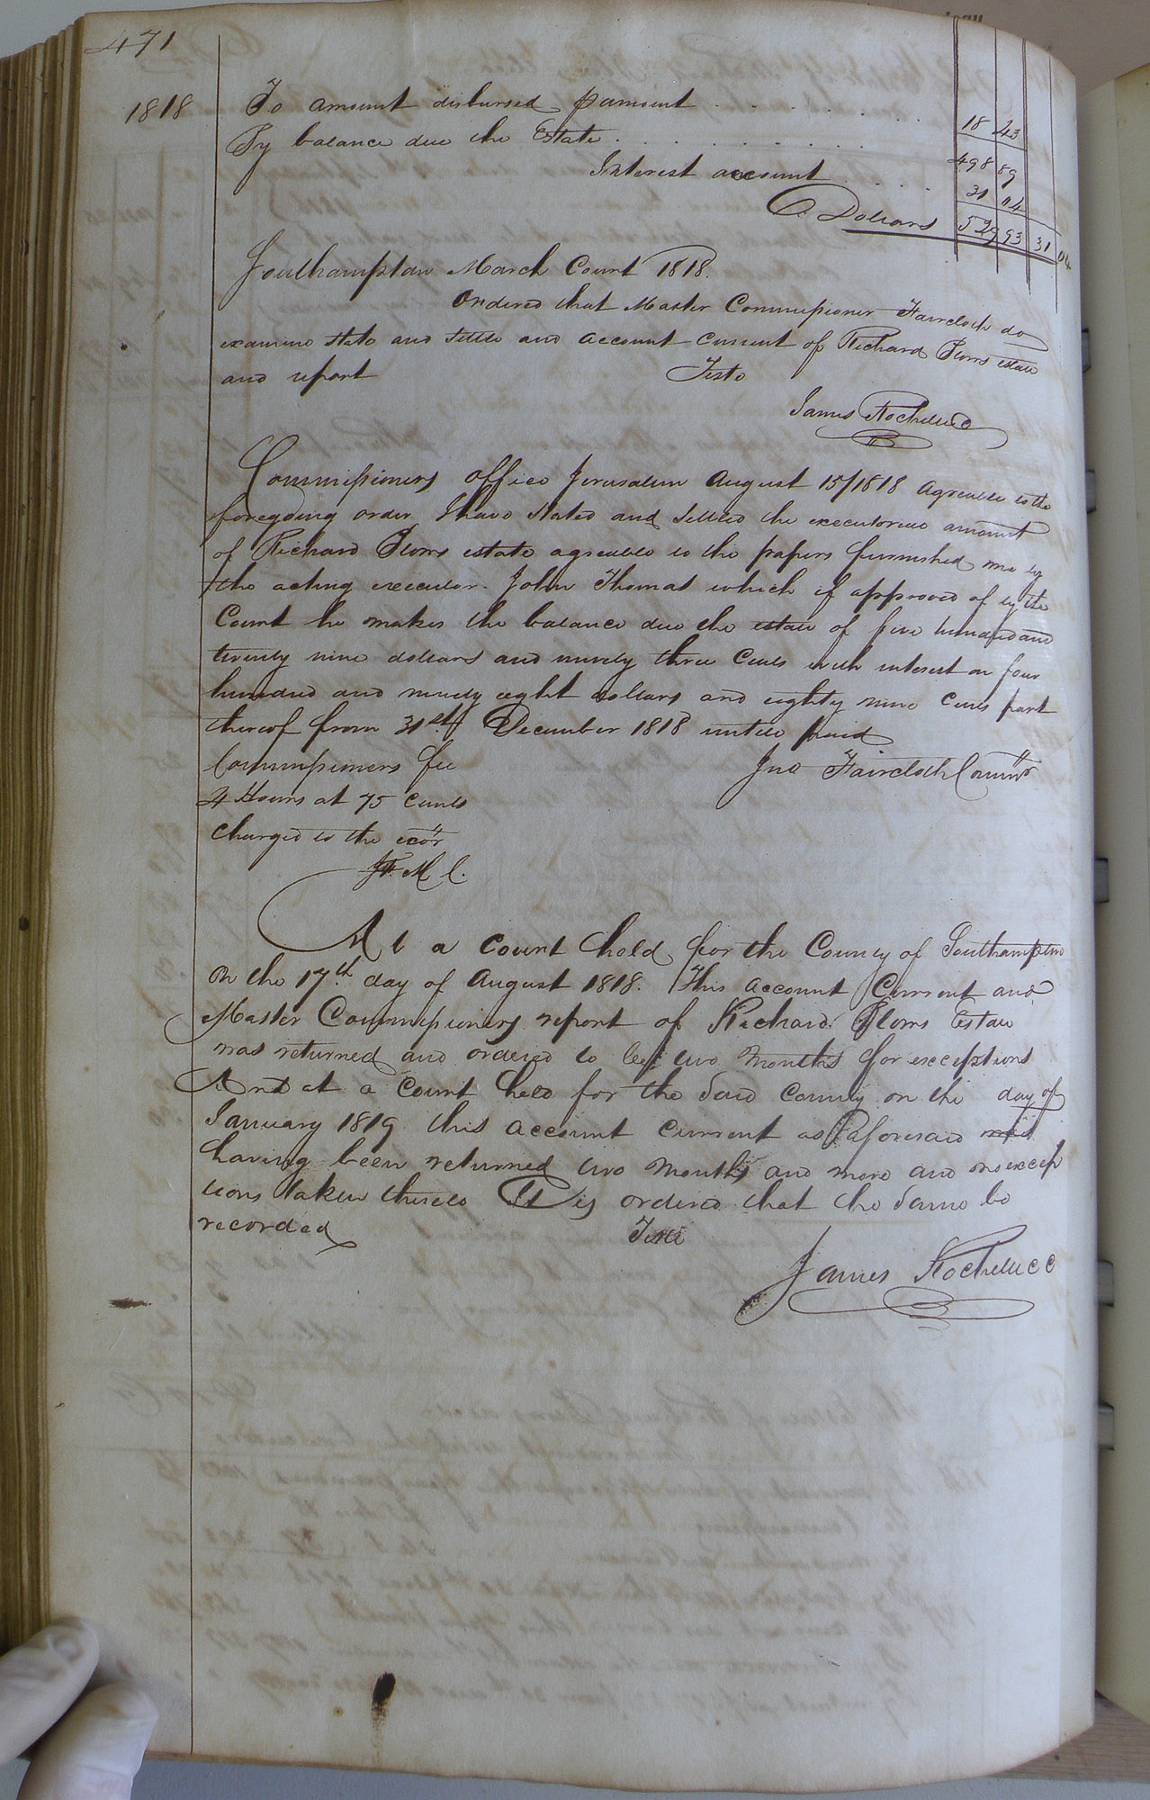 471
1818 To amount disbursed pr amount . . . . . . 18 43
By balance due the Estate . . . . . . . 498 89
Interest account . . . . 31 04
Dollars 529 93 31 04
Southampton March Court 1818.
Ordered that Master Commissioner Faircloth do
examine state and settle and account current of Richard estate
and report Teste
James Rochelle C
Commissioners office Jerusalem August 15/1818 agreeable to the
foregoing order I have stated and settled the executorial amount
of Richard estate agreeable to the papers furnished me by
the acting executor John Thomas which if approved of by the
Court he makes the balance due the estate of five hundred and
twenty nine dollars and ninety three Cents with interest on four
hundred and ninety eight dollars and eighty nine Cents part
thereof from 31st December 1818 untill paid
Commissioners fee Jno Faircloth Commr
4 Hours at 75 Cents
Charged to the exor
JF. M C.
At a Court held for the County of Southampton
on the 17th day of August 1818. This account Current and
Master Commissioners report of Richard Estate
was returned and ordered to lie two months for exceptions
And at a Court held for the Said County on the day of
January 1819 this account current as aforesaid
having been returned two months and more and no excep
tions taken thereto It is ordered that the Same be
recorded Teste
James Rochelle CC